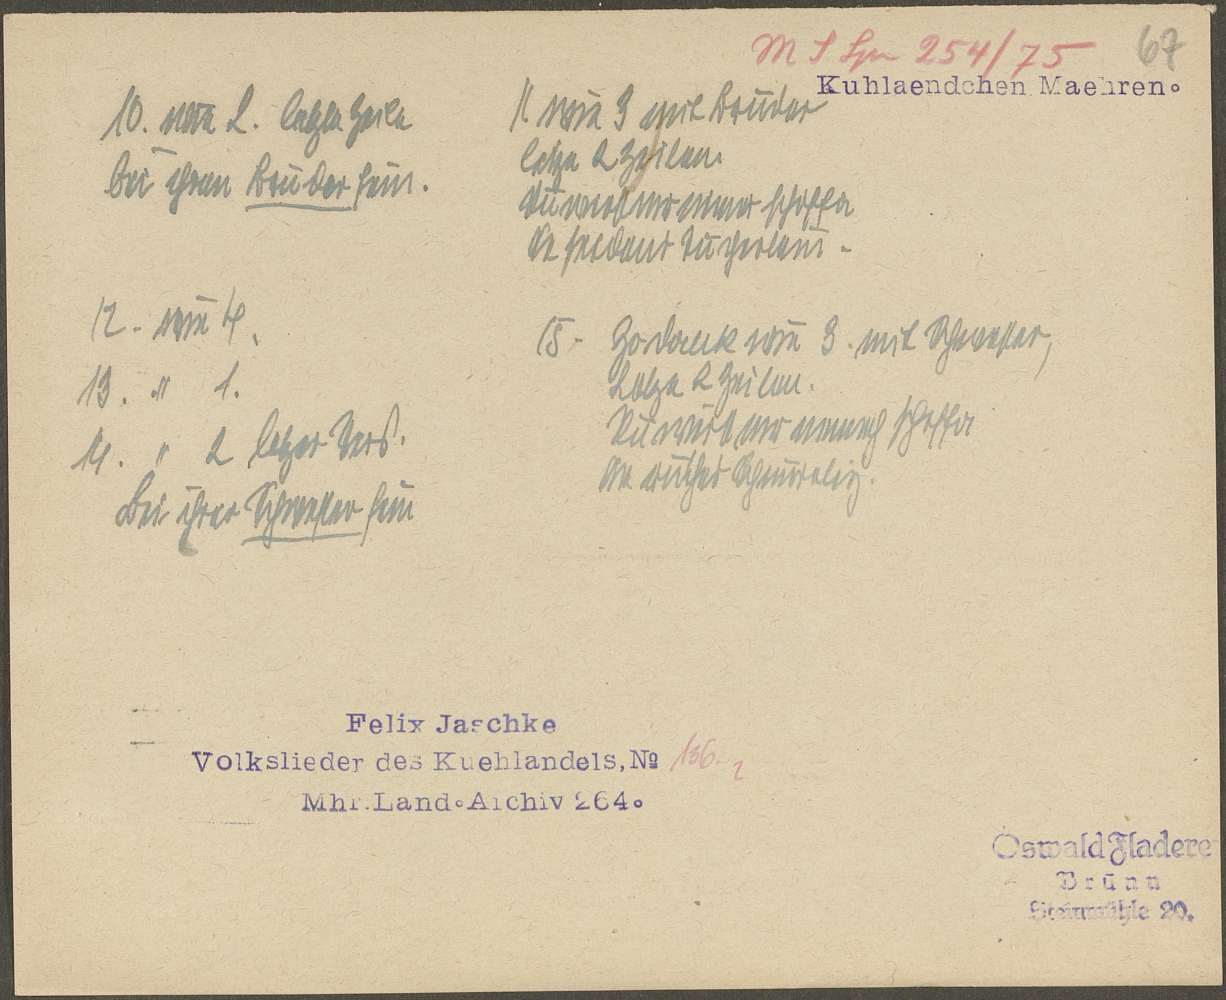 M S Spr 254/75 67
Kuhlaendchen Maehren.
10. wie 2. letzte Zeile
bei ihren Bruder sein.
11 wie 3 mit Bruder
letze 2 Zeilen.
Du wirst mr
12. wie 4.
13. " 1.
14. " 2 letzer Vers.
Bei ihrer Schwester sein
15. wie 3. mit Schwester,
Letze 2 Zeilen.
Du wirst mr
Felix Jaschke
Volkslieder des Kuehlandels, № 136
Mhr. Land. Archiv 264.
Oswald Fladere
Brünn
Steinmühle 20.